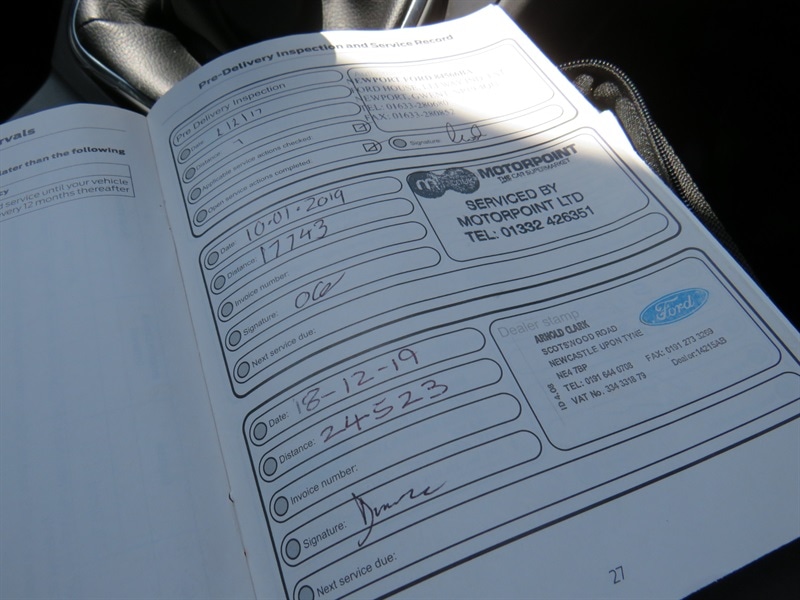 rvals
later than the following
cy
d service until your vehicle
every 12 months thereafter
Pre-Delivery Inspection and Service Record
Pre Delivery Inspection
Date: 2/2/17
Distance:
Applicable service actions checked:
Open service actions completed:
NEWPORT FORD
TEL: 01633
FAX: 01633
Signature:
Date: 10.01.2019
Distance: 17743
Invoice number:
Signature:
Next service due:
MOTORPOINT
THE CAR SUPERMARKET
SERVICED BY
MOTORPOINT LTD
TEL: 01332 426351
Date: 18-12-19
Distance: 24523
Invoice number:
Signature:
Next service due:
Dealer stamp
Ford
ARNOLD CLARK
SCOTSWOOD ROAD
NEWCASTLE UPON TYNE
NE4 7BP
TEL: 0191 644 0708 FAX: 0191 273 3259
VAT No. 334 3318 79 Dealer:14215AB
27